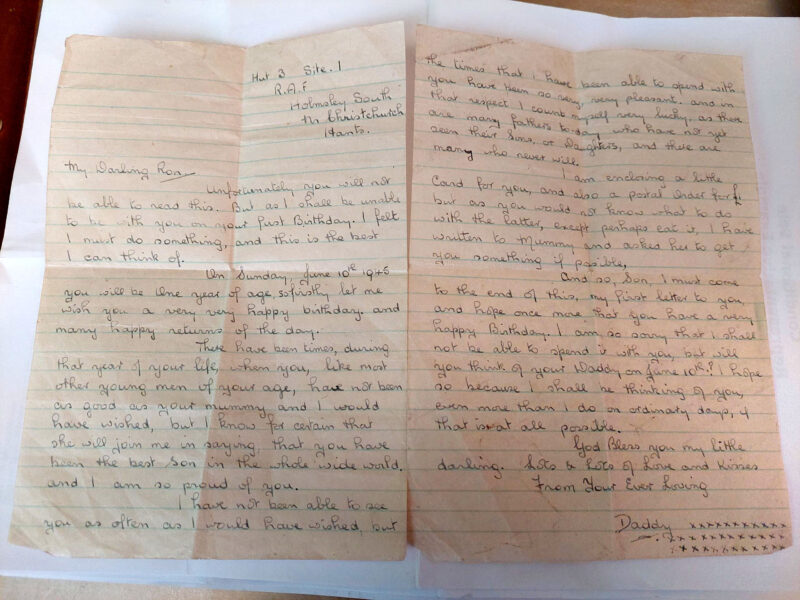 Hut 3 Site. 1
R.A.F
Holmsley South
Nr Christchurch
Hants.
My Darling Ron
Unfortunately you will not
be able to read this. But as I shall be unable
to be with you on your first Birthday. I felt
I must do something, and this is the best
I can think of.
On Sunday, June 10th 1945
you will be One year of age, so firstly let me
wish you a very very happy birthday. and
many happy returns of the day.
There have been times, during
that year of your life, when you, like most
other young men of your age, have not been
as good as your mummy and I would
have wished, but I know for certain that
she will join me in saying, that you have
been the best son in the whole wide world.
and I am so proud of you.
I have not been able to see
you as often as I would have wished, but
the times that I have been able to spend with
you have been so very, very pleasant. and in
that respect I count myself very lucky, as there
are many fathers to-day who have not yet
seen their Sons, or Daughters, and there are
many who never will.
I am enclosing a little
Card for you, and also a postal order for
but as you would not know what to do
with the latter, except perhaps eat it, I have
written to Mummy and asked her to get
you something if posible,
And so, Son, I must come
to the end of this, my first letter to you,
and hope once more that you have a very
happy Birthday. I am, so sorry that I shall
not be able to spend it with you, but will
you think of your Daddy on June 10th? I hope
so because I shall be thinking of you,
even more than I do on ordinary days, if
that is at all possible.
God Bless you my little
darling. Lots & Lots of Love and Kisses
From Your Ever Loving
Daddy xxxxxxxxxxx
xxxxxxxxxxx
xxxxxxxxxxx